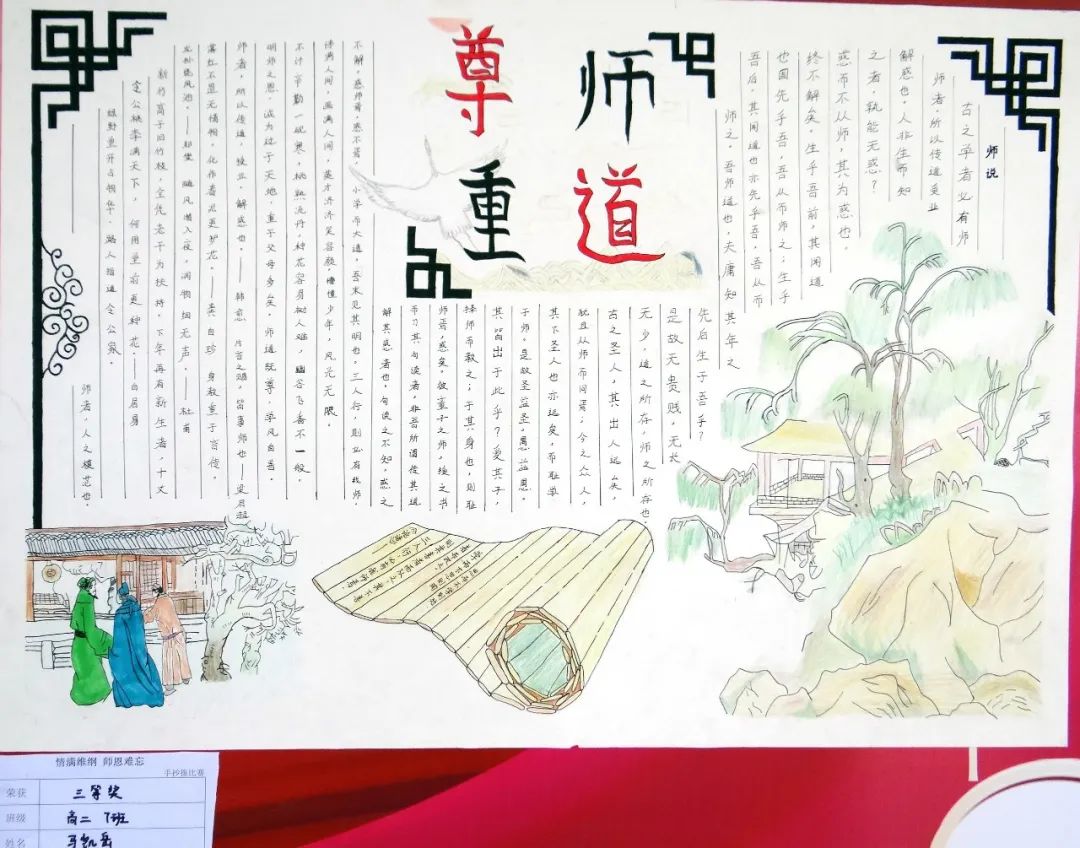 尊师重道
师说
古之学者必有师
师者，所以传道受业
解惑也，人非生而知
之者，孰能无惑？
惑而不从师，其为惑也，
终不解矣，生乎吾前，其闻道
也固先乎吾，吾从而师之；生乎
吾后，其闻道也亦先乎吾，吾从而
师之，吾师道也，夫庸知
其年之
先后生于吾乎？
是故无贵贱，无长
无少，道之所存，师之所存也。
古之圣人，其出人远矣，
犹且从师而问焉；今之众人，
其下圣人也亦远矣，而耻学
于师，是故圣益圣，愚益愚，
其皆出于此乎？爱其子，
择师而教之；于其身也，则耻
师焉，惑矣，彼童子之师，授之书
而习其句读者，非吾所谓传其道
解其惑者也，句读之不知，惑之
不解，或师焉，或不焉，小学而大遗，吾未见其明也，三人行，则必有我师，
诗满人间，画满人间，英才济济笑容颜，懵懂少年，风光无限。
不计辛勤一砚寒，桃熟流丹，种花容易树人难，幽谷飞香不一般
明师之恩，诚为过于天地，重于父母多矣，师道既尊，学风自善。
师者，所以传道，授业，解惑也。——韩愈 片言之赐，皆事师也——梁启超
落红不是无情物，化作春泥更护花。——龚自珍 身教重于言传，
随风潜入夜，润物细无声。——杜甫
新竹高于旧竹枝，全凭老干为扶持，下年再有新生者，十丈
令公桃李满天下，何用堂前更种花。——白居易
绿野堂开占物华，路人指道令公家，
师者，人之模范也。
情满维纲 师恩难忘
手抄报比赛
荣获 三等奖
班级 高二 7班
姓名 马凯岳